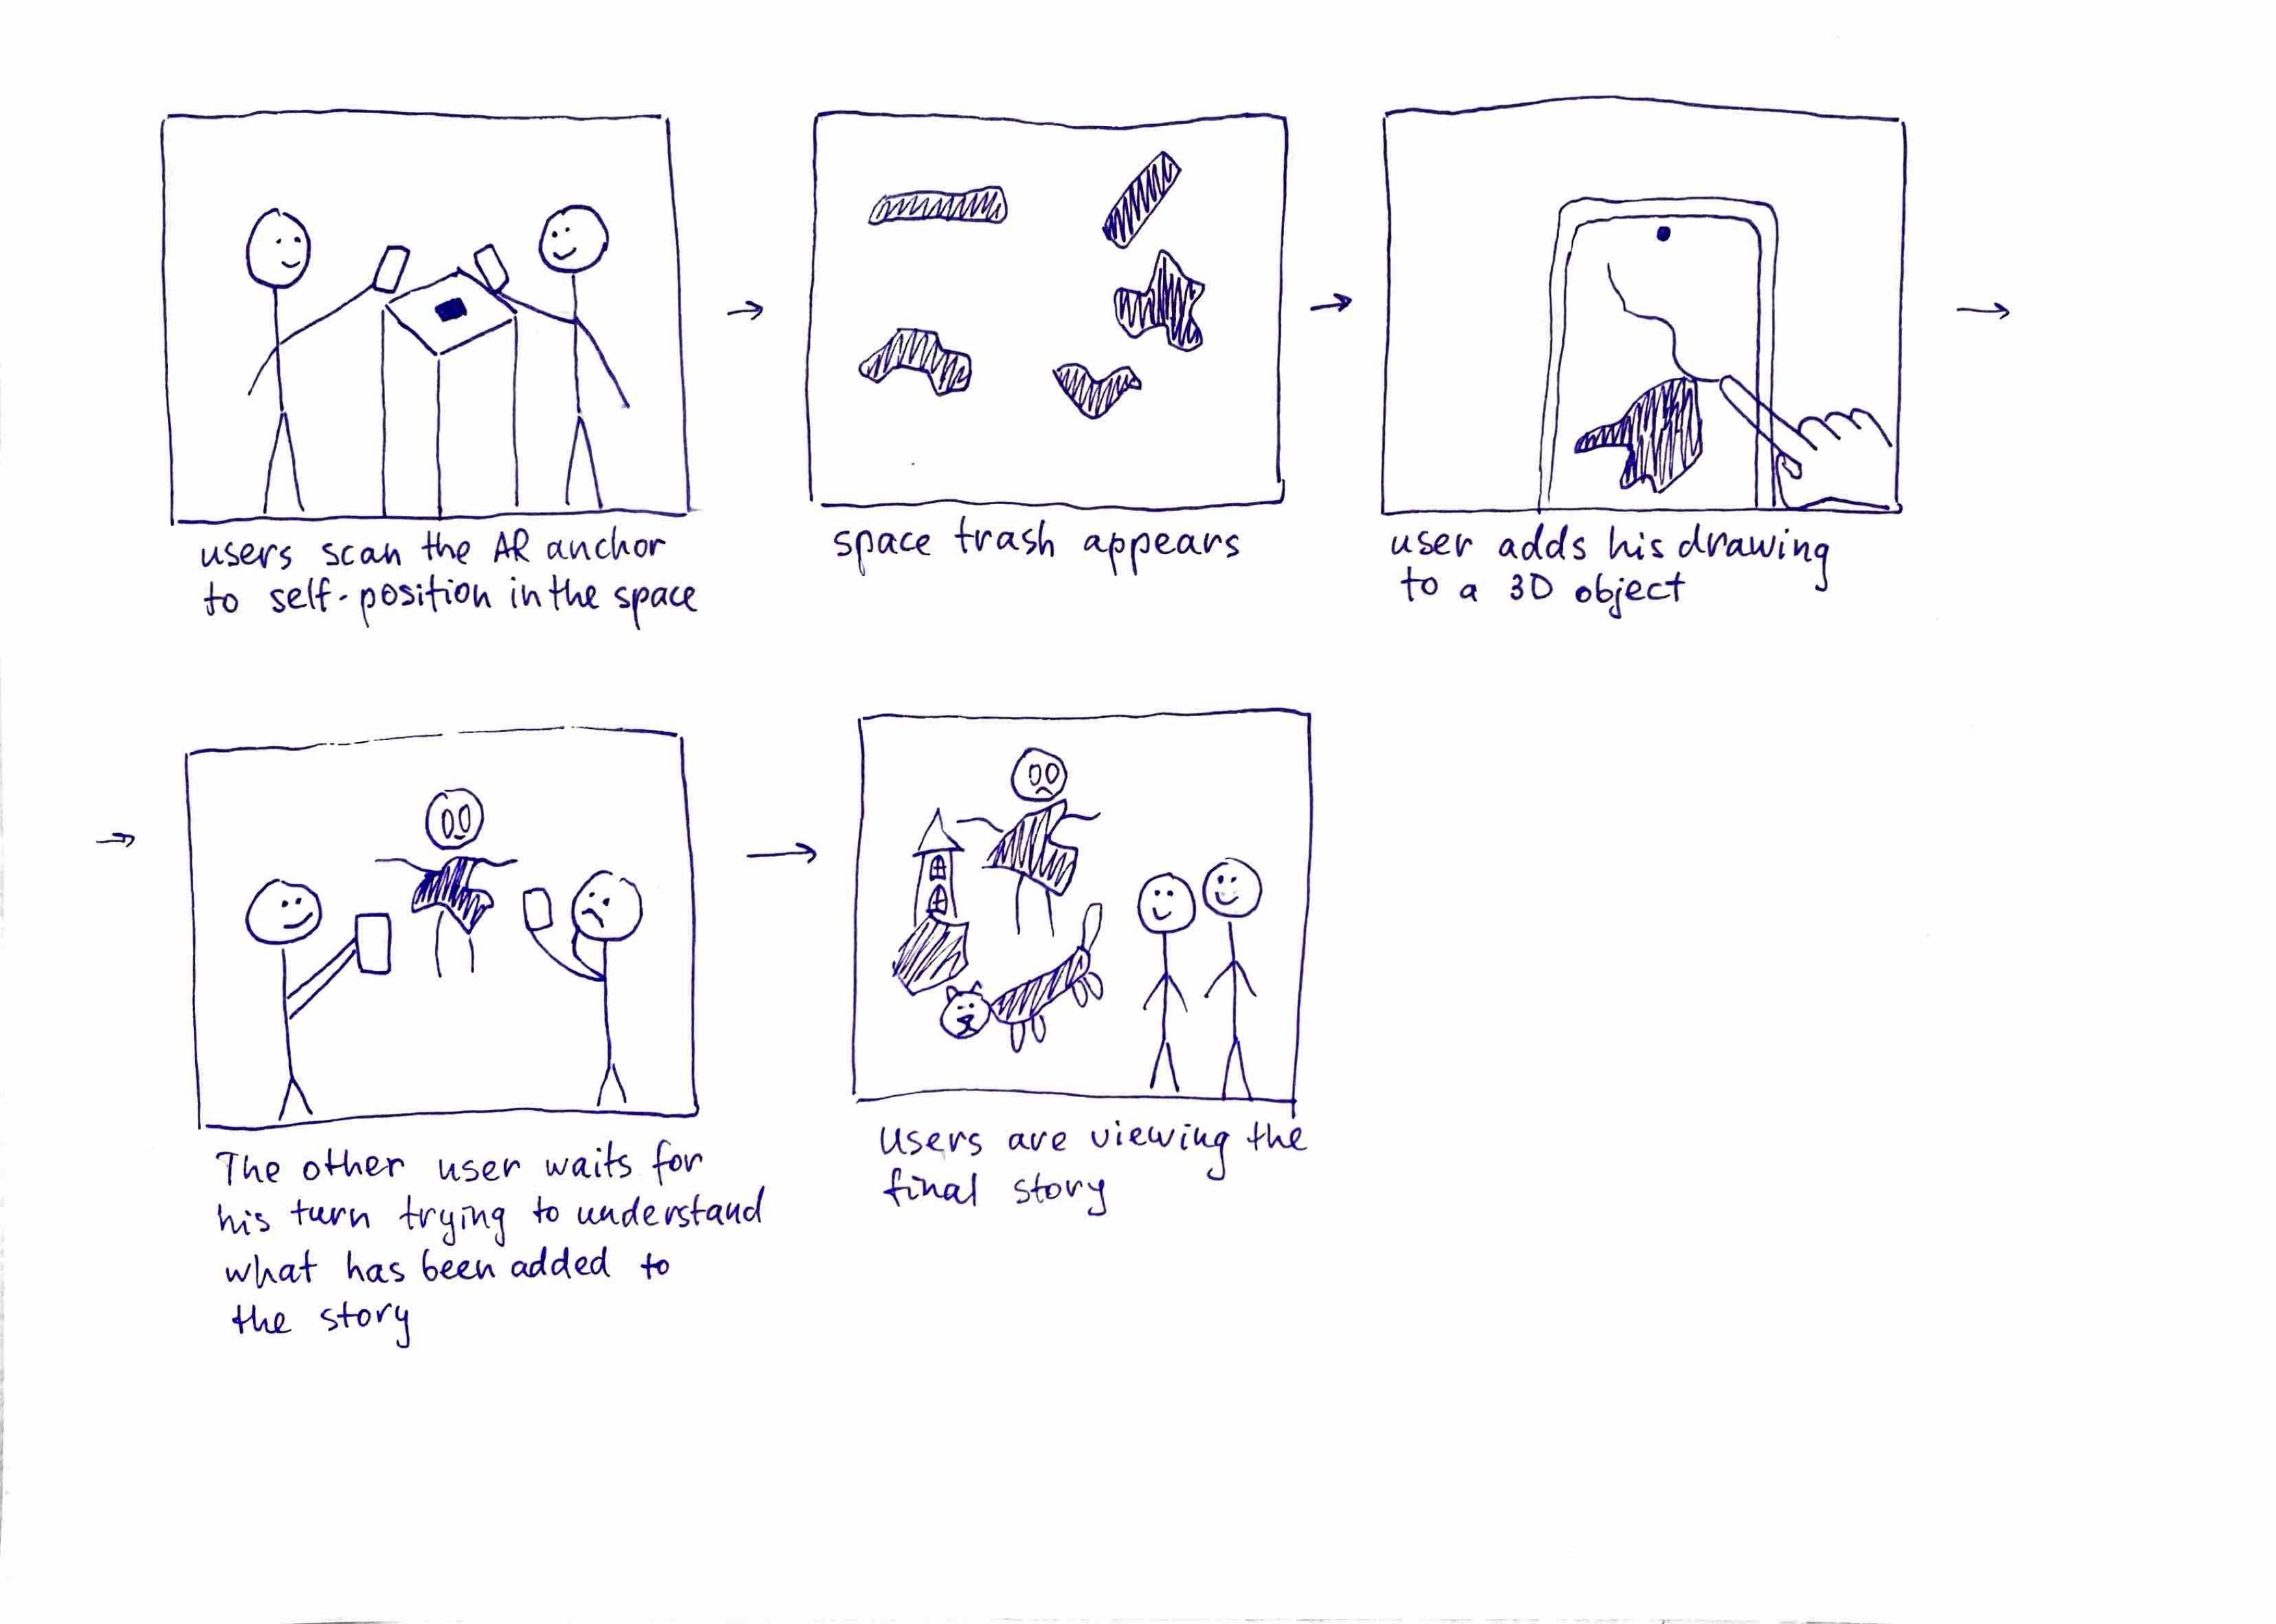 users scan the AR anchor
to self-position in the space
space trash appears
user adds his drawing
to a 3D object
The other user waits for
his turn trying to understand
what has been added to
the story
users are viewing the
final story